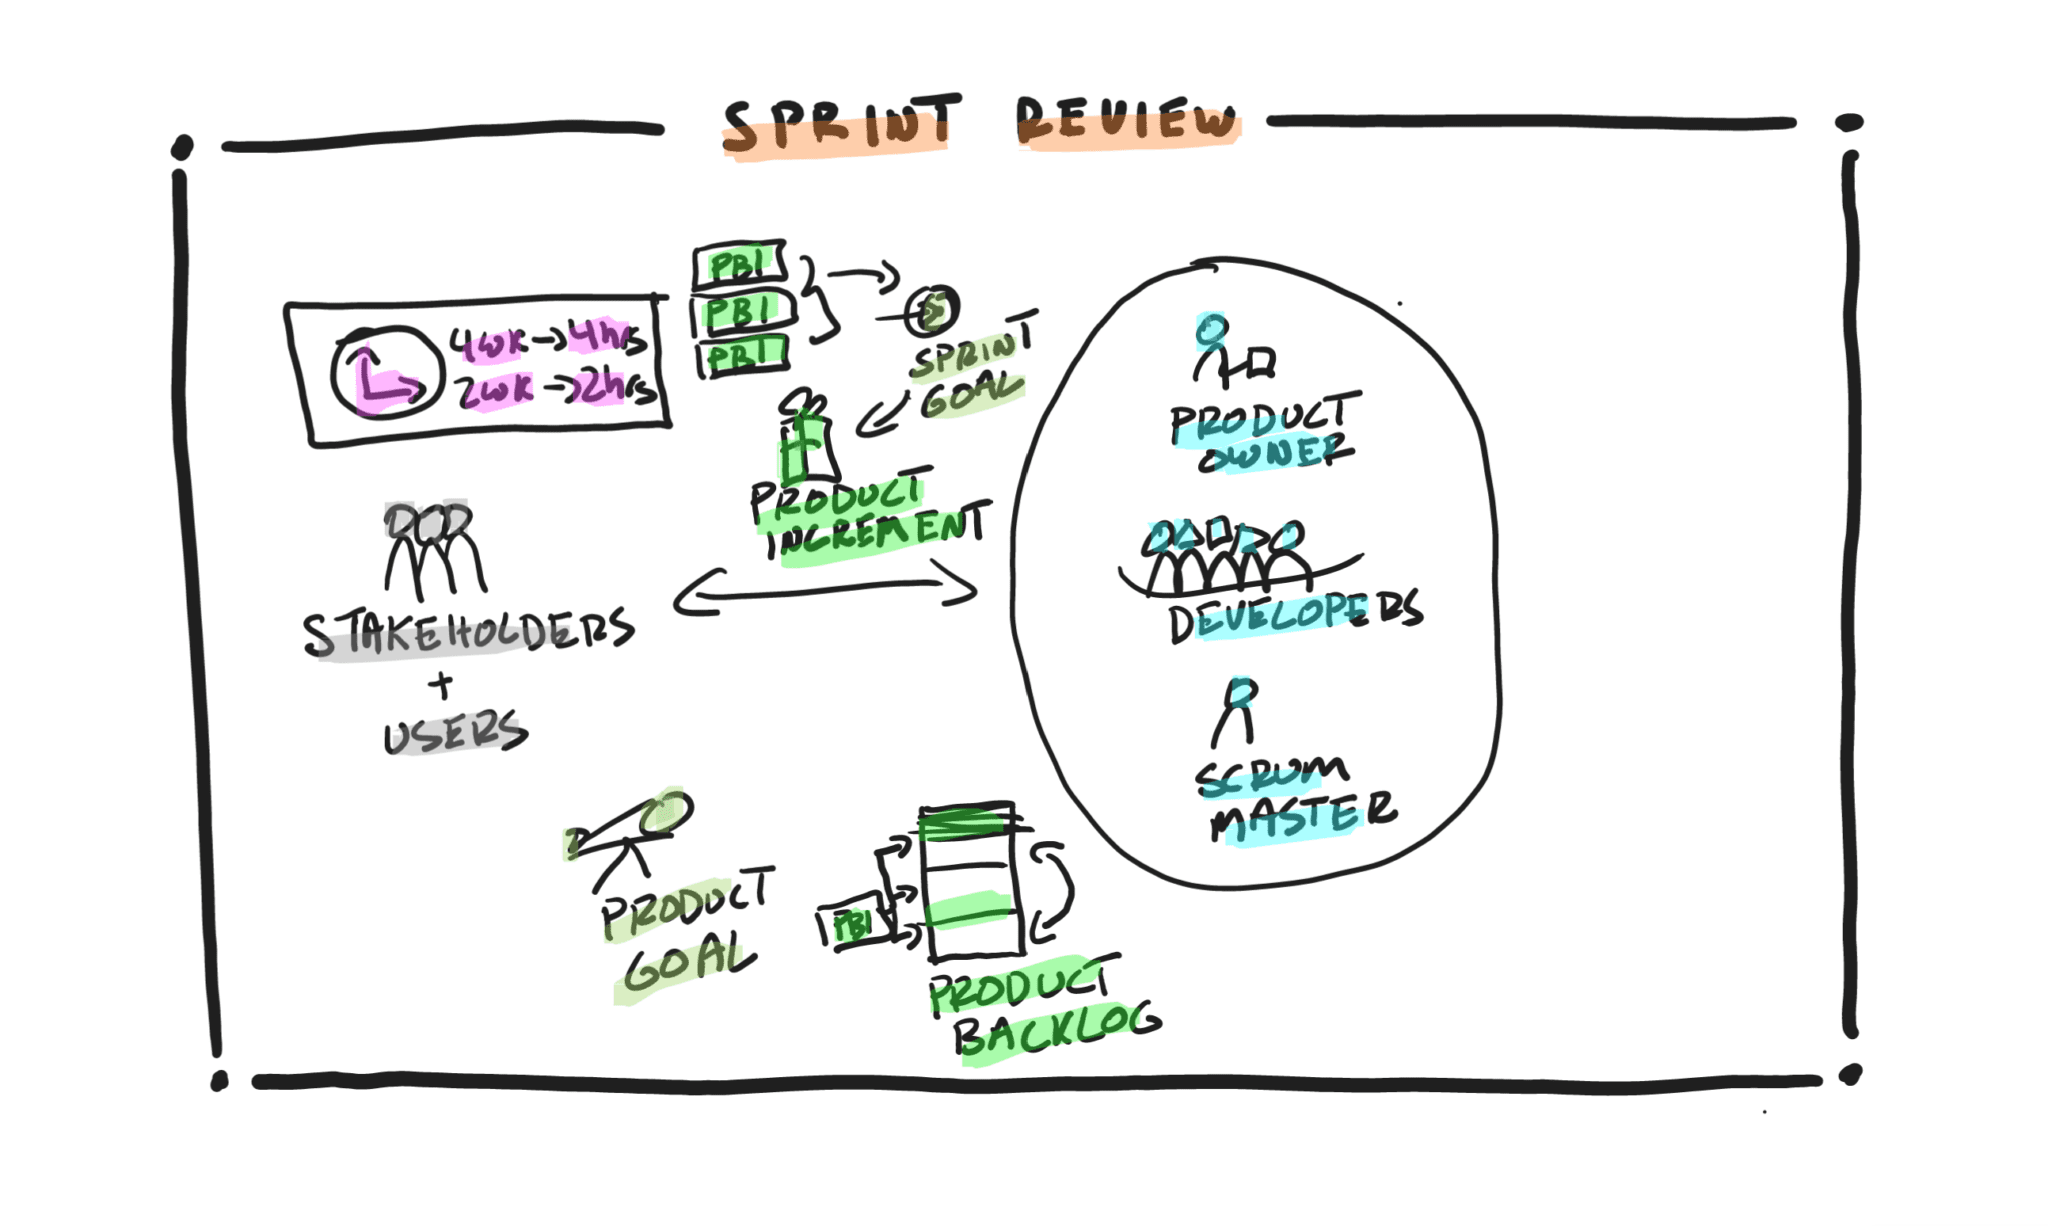 SPRINT REVIEW
4wk → 4hrs
2wk → 2hrs
PBI
PBI
PBI
SPRINT
GOAL
PRODUCT
INCREMENT
STAKEHOLDERS
+
USERS
PRODUCT
OWNER
DEVELOPERS
SCRUM
MASTER
PRODUCT
GOAL
PBI
PRODUCT
BACKLOG